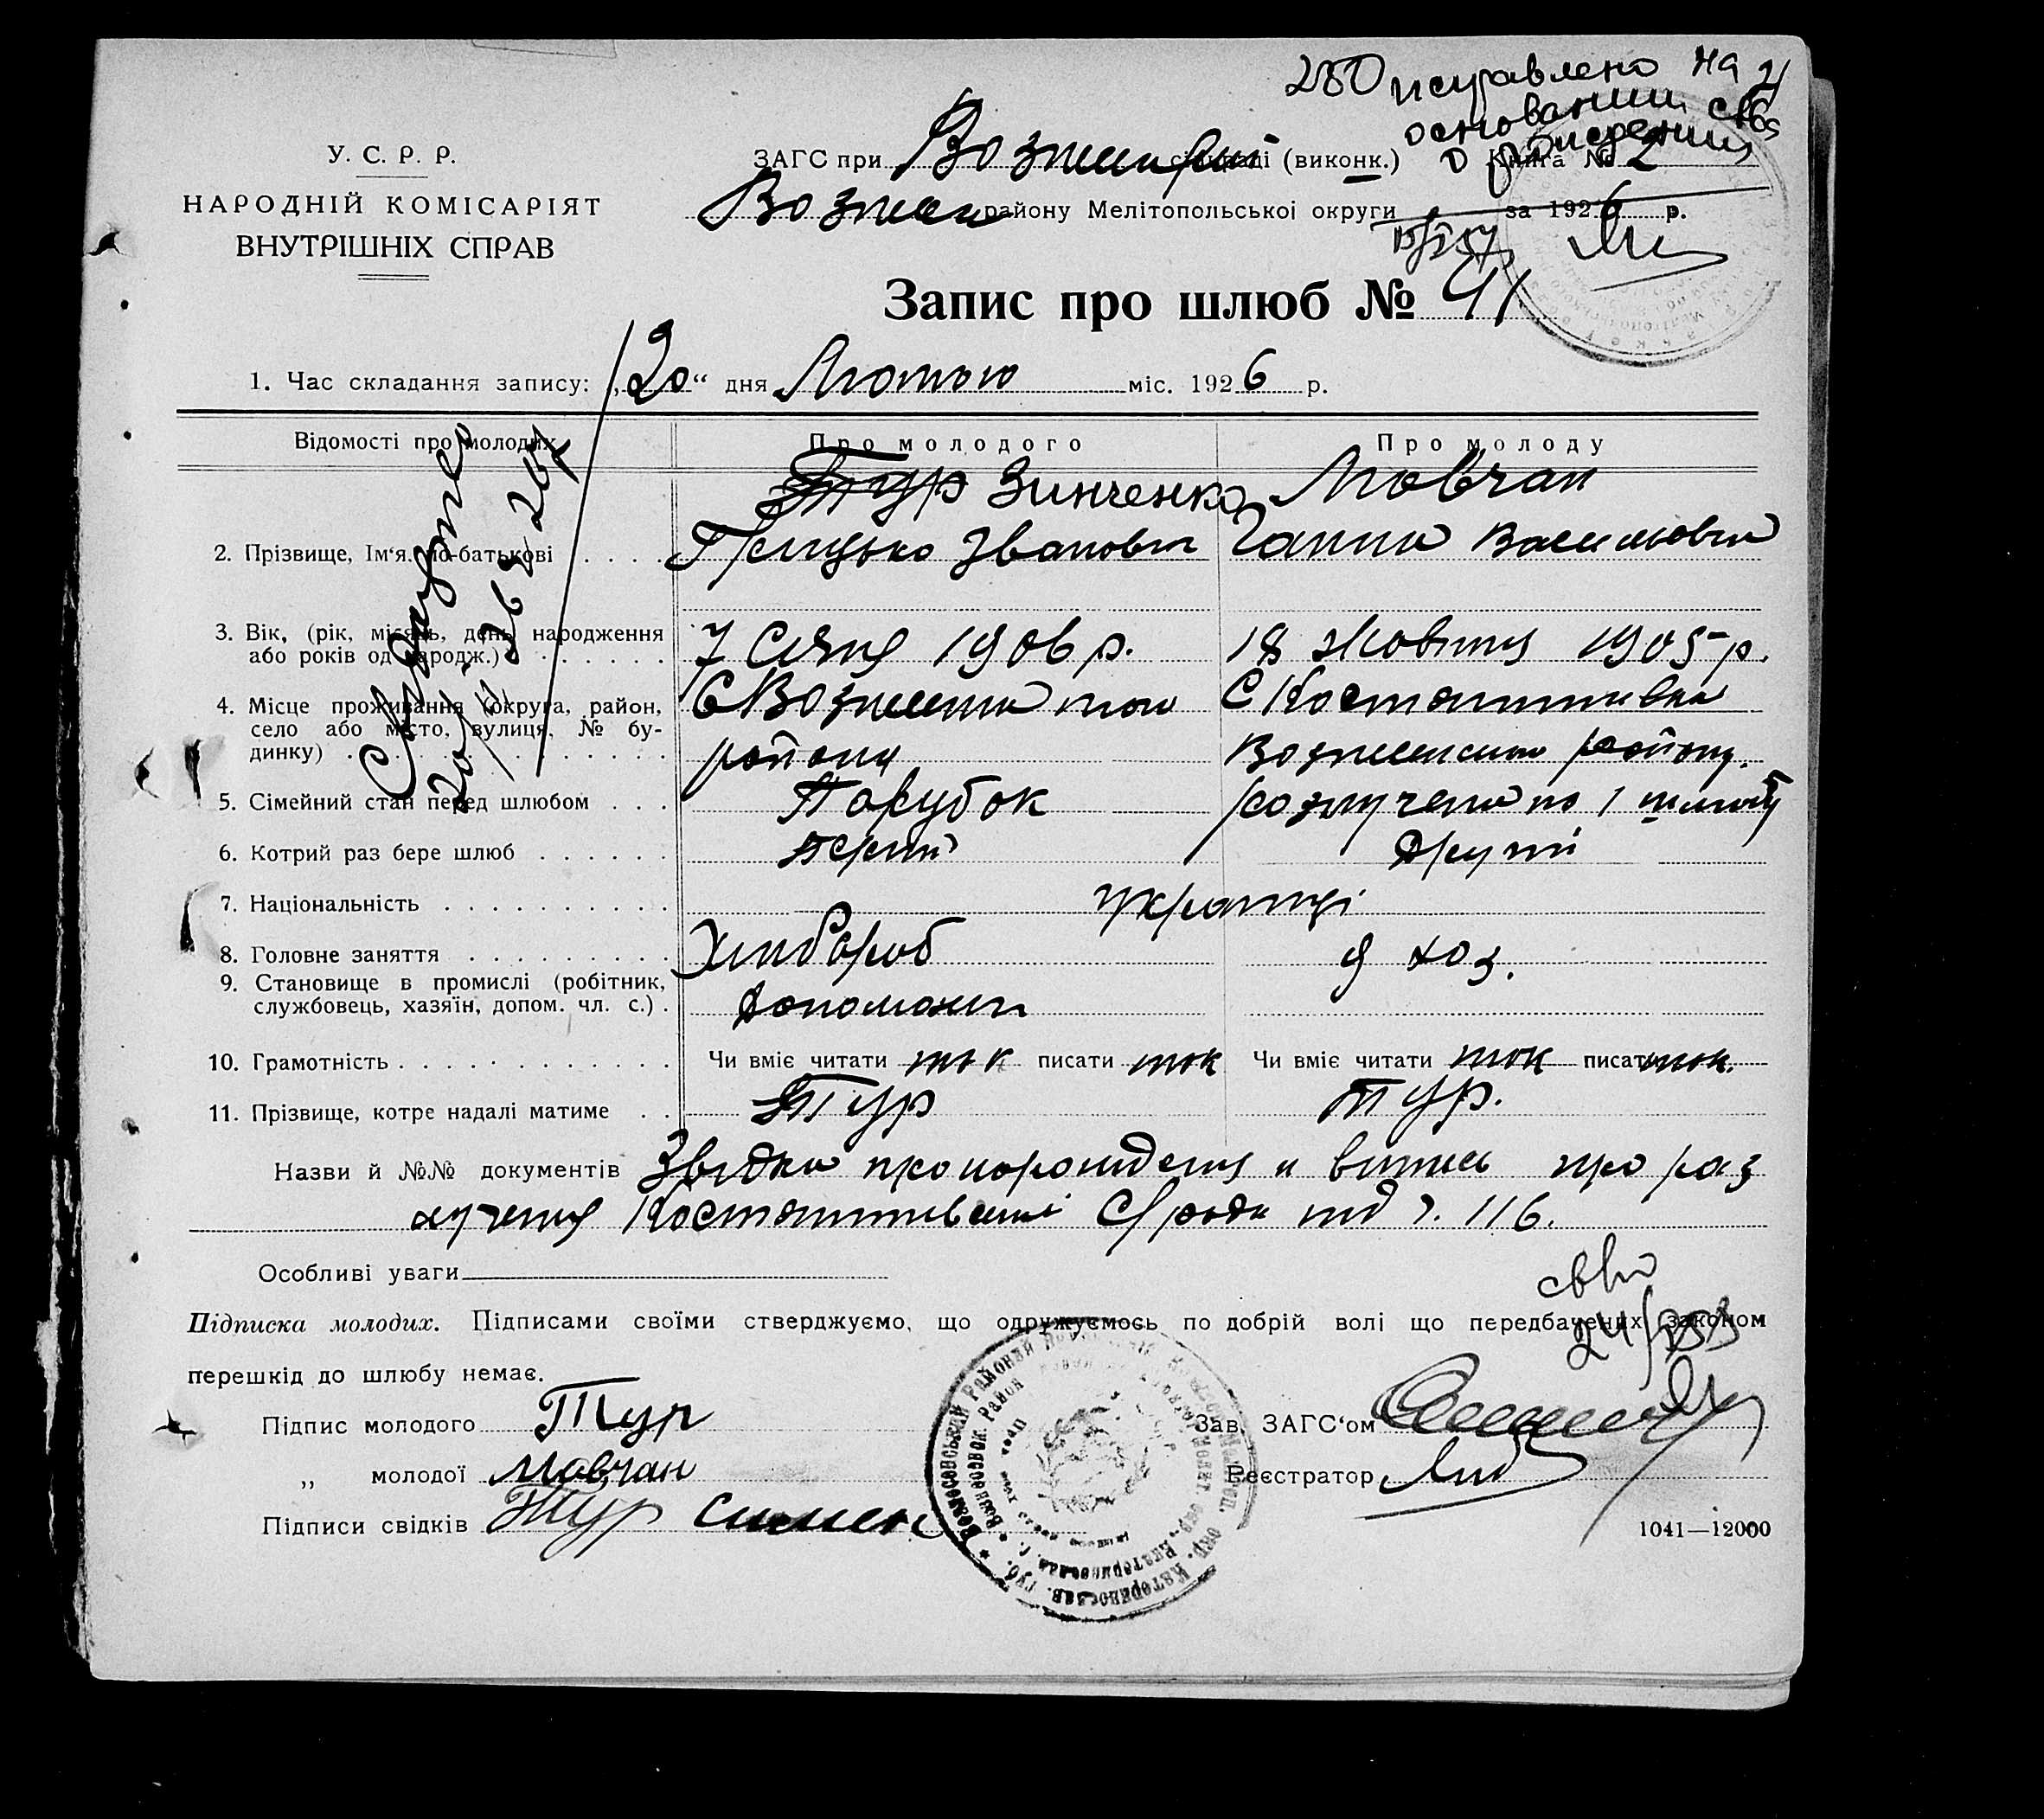 280 исправлено на
основании св
о рождении
У. С. Р. Р.
НАРОДНІЙ КОМІСАРІЯТ
ВНУТРІШНІХ СПРАВ
ЗАГС при сільраді (виконк.) Книга № 2
Вознесен району Мелітопольської округи за 1926 р.
Запис про шлюб № 41
1. Час складання запису: „20“ дня Лютого міс. 1926 р.
Відомості про молодих Про молодого Про молоду
Тур Зинченко Мовчан
2. Прізвище, Ім'я, по-батькові . . . . Грицько Іванович Ганна Василівна
3. Вік, (рік, місяць, день народження
або років од народж.) . . . . . . 7 Січня 1906 р. 18 Жовтня 1905 р.
4. Місце проживання (округа, район,
село або місто, вулиця, № бу-
динку) . . . . . . . . . . . . .
С Костянтинівка
району Вознесенського району.
5. Сімейний стан перед шлюбом . . . Парубок розлучена по 1 шлюбу
6. Котрий раз бере шлюб . . . . . . Перший другий
7. Національність . . . . . . . . . . українці
8. Головне заняття . . . . . . . . . Хлібороб д хоз.
9. Становище в промислі (робітник,
службовець, хазяїн, допом. чл. с.) . допомажич
10. Грамотність . . . . . . . . . . . . Чи вміє читати так писати так Чи вміє читати так писати так.
11. Прізвище, котре надалі матиме . . Тур Тур.
Назви й №№ документів Звідка про нарождення и випись про раз
лучення Костянтинівської С/ради під ч. 116.
Особливі уваги
24/
Підписка молодих. Підписами своїми стверджуємо, що одружуємось по добрій волі що передбачених законом
перешкід до шлюбу немає.
Підпис молодого Тур Зав. ЗАГС'ом
„ молодої Мовчан Реєстратор
Підписи свідків Тур Симен
1041—12000